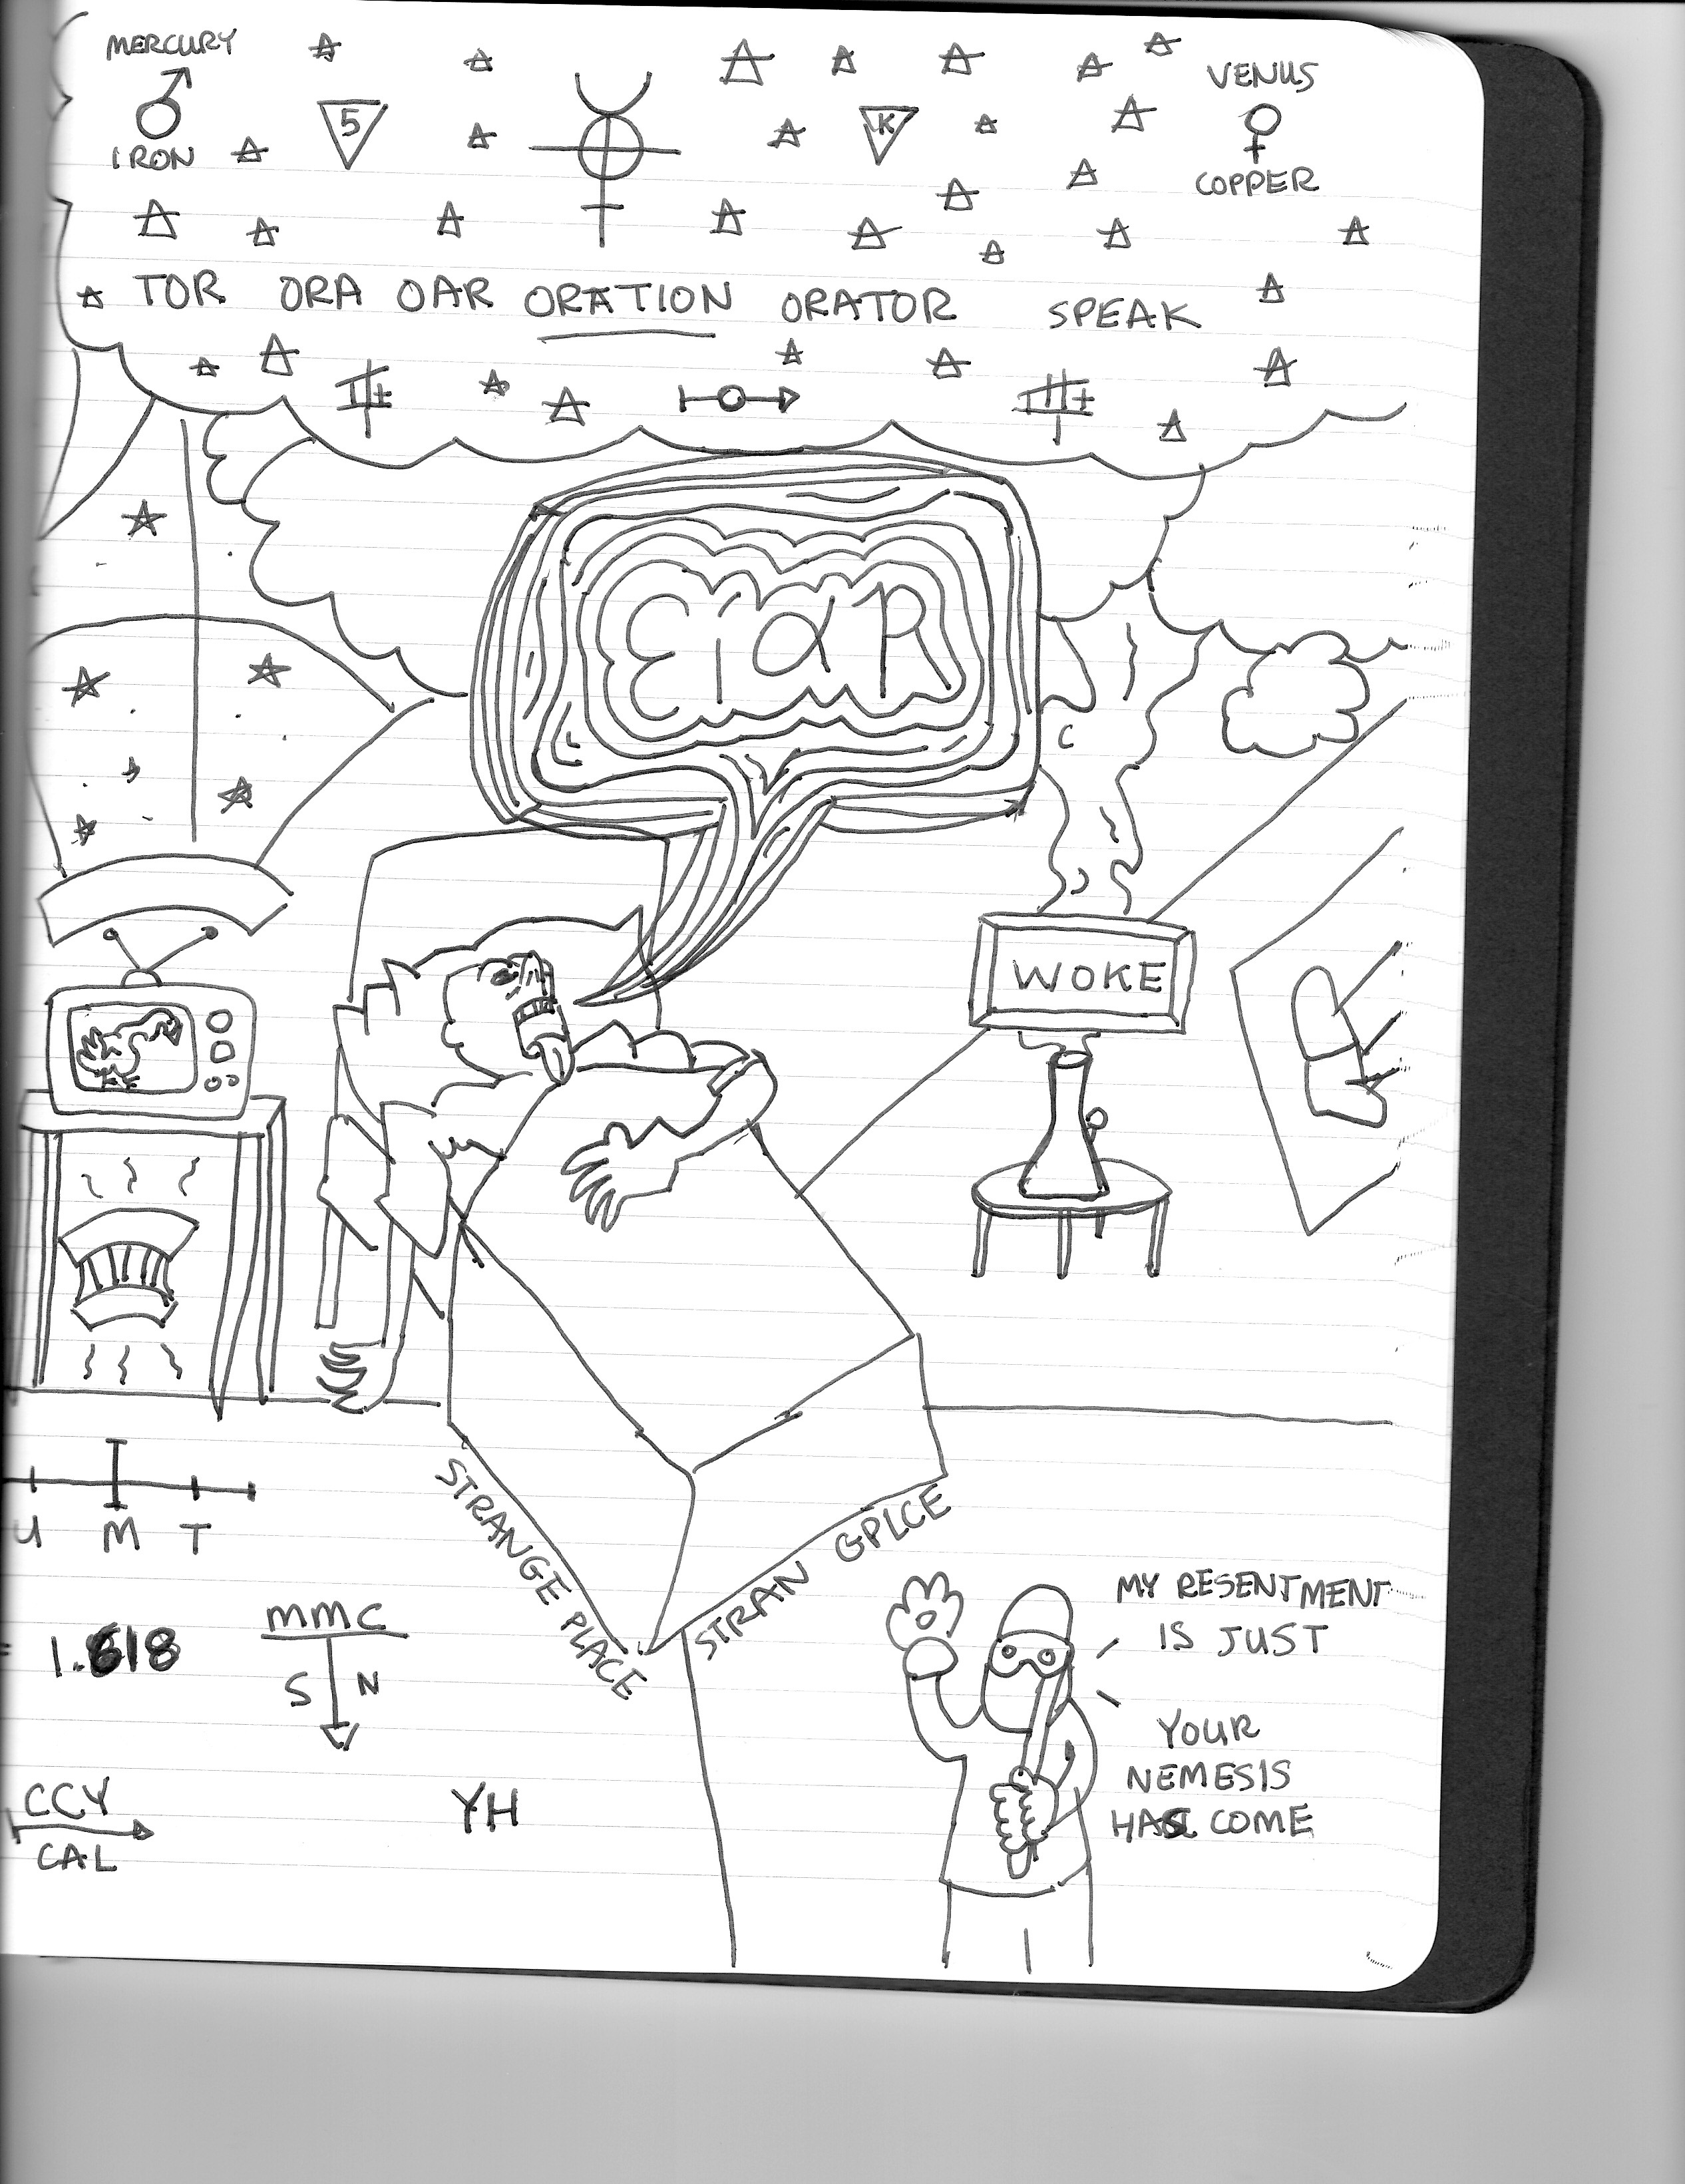 MERCURY
IRON
5
K
VENUS
COPPER
TOR ORA OAR ORATION ORATOR SPEAK
WOKE
U M T
STRANGE PLACE
STRAN GPLCE
1.618
MMC
S N
CCY
CAL
YH
MY RESENTMENT
IS JUST
YOUR
NEMESIS
HAS COME